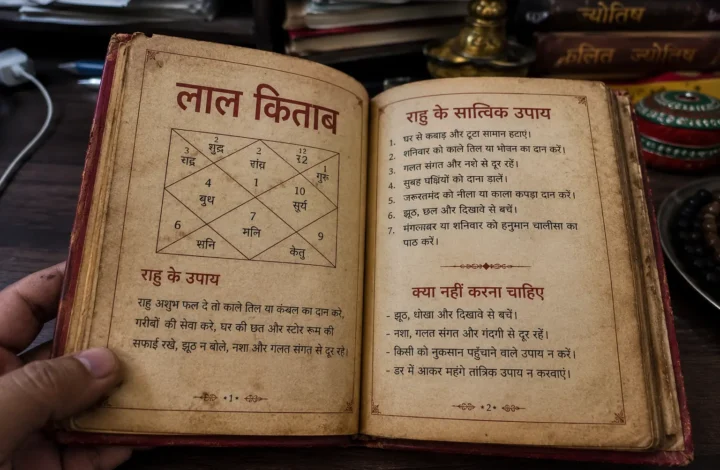 ज्योतिष
फलित ज्योतिष
लाल किताब
2
शुद्र
3
राद्र
2
रांघ्र
12
१2
1
गुरु
4
बुध
1
10
सूर्य
7
मलि
6
सनि
9
केतु
राहु के उपाय
राहु अशुभ फल दे तो काले तिल या कंबल का दान करे,
गरीबों की सेवा करे, घर की छत और स्टोर रूम की
सफाई रखे, झूठ न बोले, नशा और गलत संगत से दूर रहे।
•1•
राहु के सात्विक उपाय
1. घर से कबाड़ और टूटा सामान हटाएं।
2. शनिवार को काले तिल या भोवन का दान करें।
3. गलत संगत और नशे से दूर रहें।
4. सुबह पक्षियों को दाना डालें।
5. जरूरतमंद को नीला या काला कपड़ा दान करें।
6. झूठ, छल और दिखावे से बचें।
7. मंगलवार या शनिवार को हनुमान चालीसा का
पाठ करें।
क्या नहीं करना चाहिए
- झूठ, धोखा और दिखावे से बचें।
- नशा, गलत संगत और गंदगी से दूर रहें।
- किसी को नुकसान पहुँचाने वाले उपाय न करें।
- डर में आकर महंगे तांत्रिक उपाय न करवाएं।
•2•